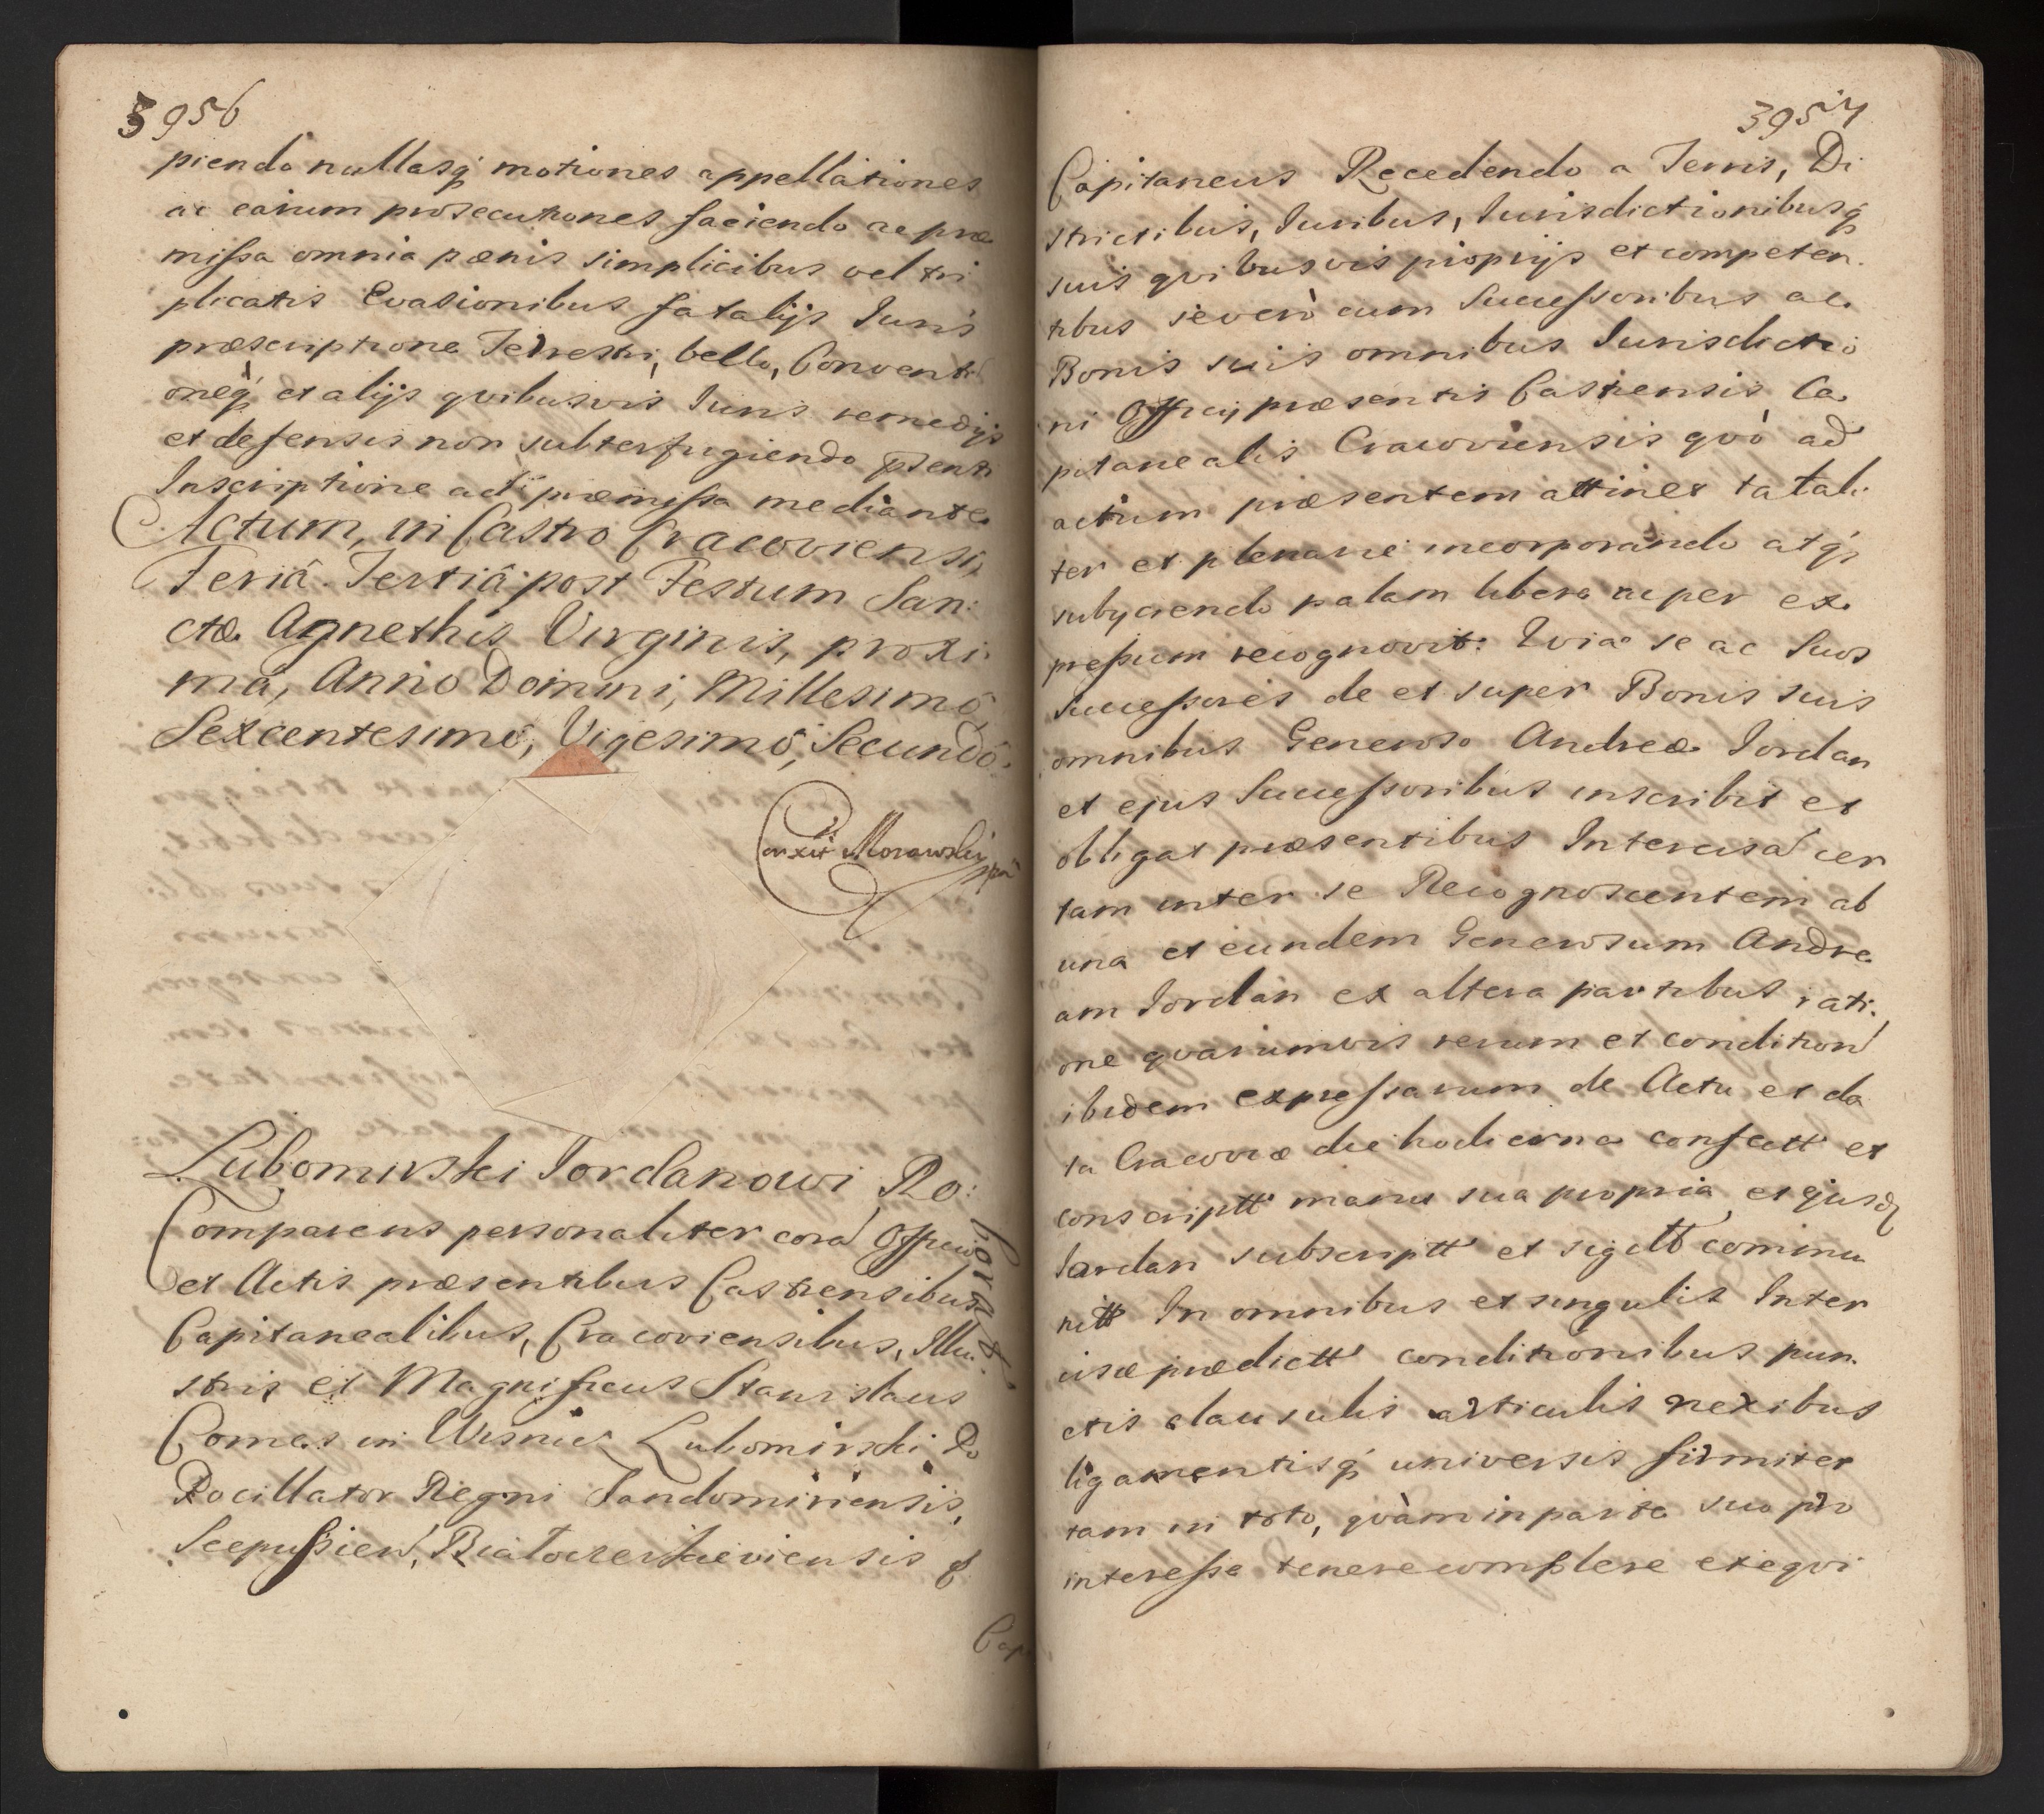 3956
piendo nullasq́ motiones appellationes
ac earum prosecutiones faciendo ac præ
missa omnia pænis simplicibus vel tri
plicatis Evasionibus fatalijs Iuris
præscriptione Terrestri, bello, Conventi
oneq́ et alijs qvibusvis Iuris remedijs
et defensis non subterfugiendo
Inscriptione ad præmissa mediante
Actum, in Castro Cracoviensi,
Feriâ Tertiâ post Festum San:
ctæ Agnethis Virginis, proxi:
mâ, Anno Domini, Millesimô
Sexcentesimô, Vigesimô, Secundô.
Morawski
Lubomirski Iordanowi Ro:
borat
Comparens personaliter corā Officio
et Actis præsentibus Castrensibus
Capitanealibus, Cracoviensibus, Illu:
stris et Magnificus Stanislaus
Comes in Wisnicz Lubomirski Po
Pocillator Regni Sandomiriensis,
Scepusien, Białocerkieviensis &
Cap
3957
Capitaneus Recedendo a Terris, Di
strictibus, Iuribus, Iurisdictionibusq́
suis qvibusvis proprijs et competen.
tibus se verò cum Successoribus ac
Bonis suis omnibus Iurisdictio
ni Officij præsentis Castrensis Ca
pitanealis Cracoviensis qvò ad
actum præsentem attinet totali
ter et plenariè incorporando atq́
subijciendo palam libere ac per ex
pressum recognovit: Qvia se ac Suos
Successores de et super Bonis suis
omnibus Generoso Andreæ Iordan
et ejus Successoribus inscribit et
obligat præsentibus Intercisā cer
tam inter se Recognoscentem ab
una et eundem Generosum Andre
am Iordan ex altera partibus rati.
one qvarumvis rerum et condition
ibidem expressarum de Actu et da
ta Cracoviæ die hodierna confectt et
conscriptt manu sua propria et ejusd
Iordan subscriptt et sigitt commu
nitt In omnibus et singulis Inter
cisæ prædictt conditionibus pun
ctis clausulis articulis nexibus
ligamentisq́ universis firmiter
tam in toto, qvàm in parte sua pro
interesse tenere complere exeqvi